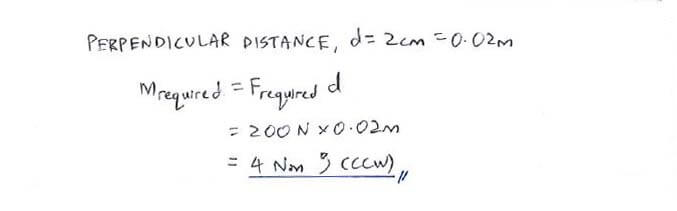 PERPENDICULAR DISTANCE, d = 2cm = 0.02m
Mrequired = Frequired d
= 200 N x 0.02m
= 4 Nm ↺ (CCW)